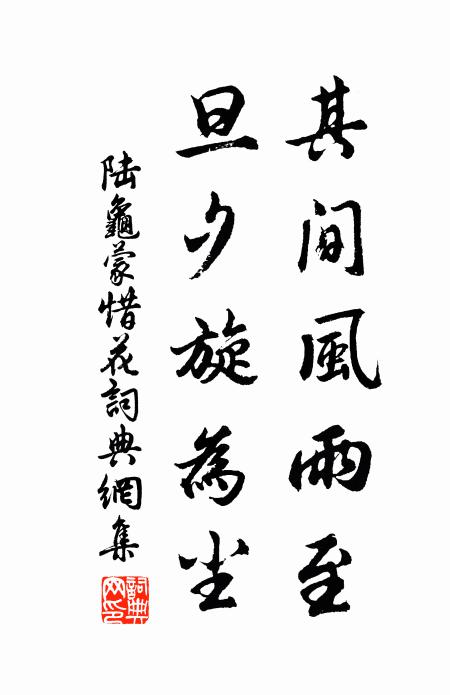 其間風雨至
旦夕旋為尘
陆龜蒙惜花詞典網集
詞典网印